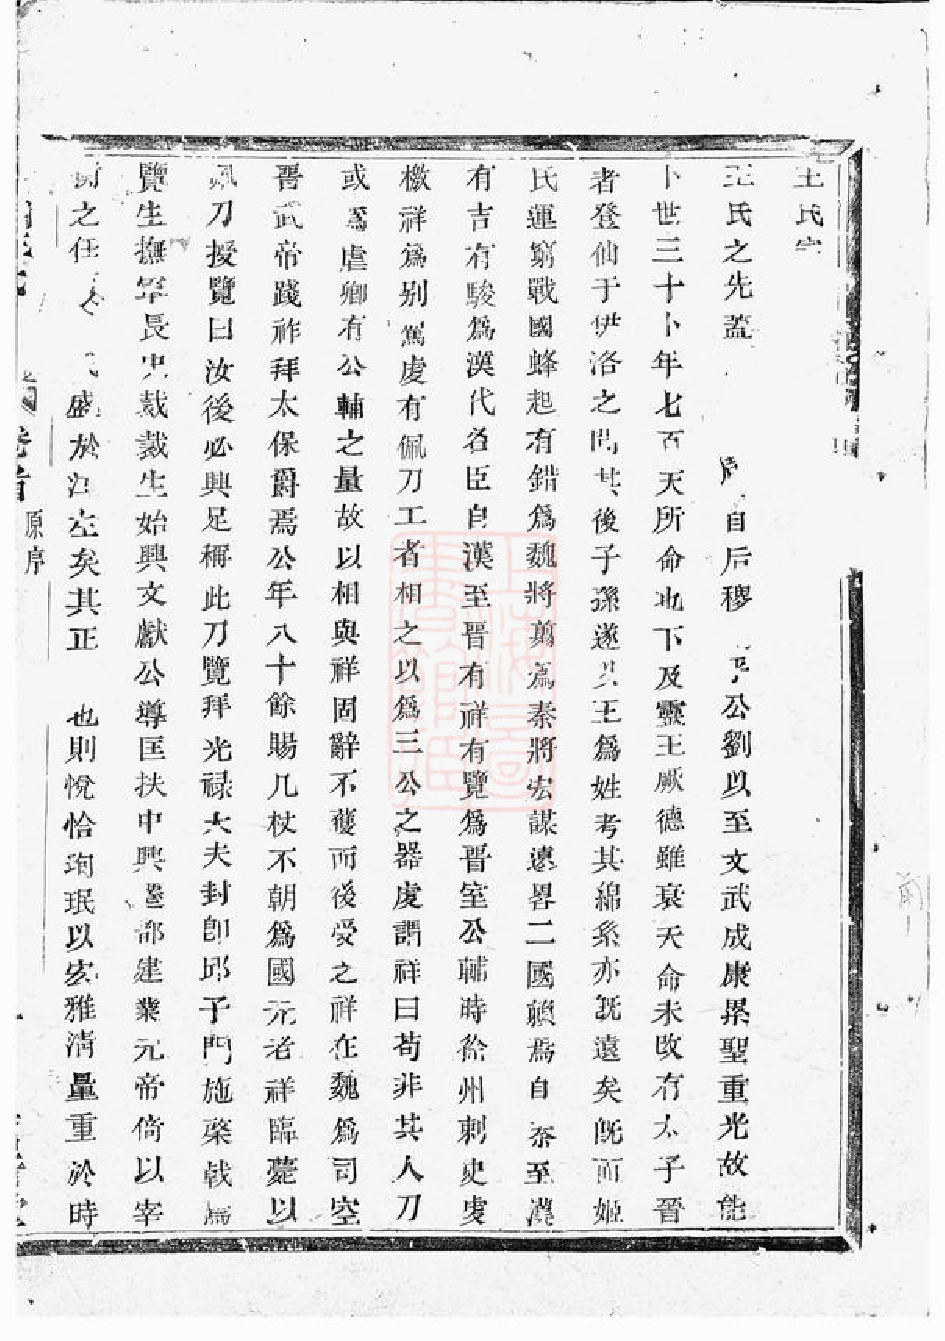 王氏宗
王氏之先蓋周自后稷公劉以至文武成康累聖重光故能
卜世三十卜年七百天所命也下及靈王厥德雖衰天命未改有太子晉
者登仙于伊洛之間其後子孫遂以王為姓考其綿系亦既遠矣既而姬
氏運窮戰國蜂起有錯為魏將翦為秦將宏謀遠畧二國賴焉自秦至漢
有吉有駿為漢代名臣自漢至晋有祥有覽為晋室公輔時徐州刺史虔
檄祥為别駕虔有佩刀工者相之以為三公之器虔謂祥曰苟非其人刀
或為虐卿有公輔之量故以相與祥固辭不獲而後受之祥在魏為司空
晋武帝踐祚拜太保爵焉公年八十餘賜几杖不朝為國元老祥臨薨以
佩刀授覽曰汝後必興足稱此刀覽拜光祿大夫封即邱子門施棨戟焉
覽生撫軍長史裁裁生始興文獻公導匡扶中興遷都建業元帝倚以宰
衡之任盛於江左矣其正也則悅恰珣珉以宏雅清量重於時
卷首
原序
上海圖書館藏